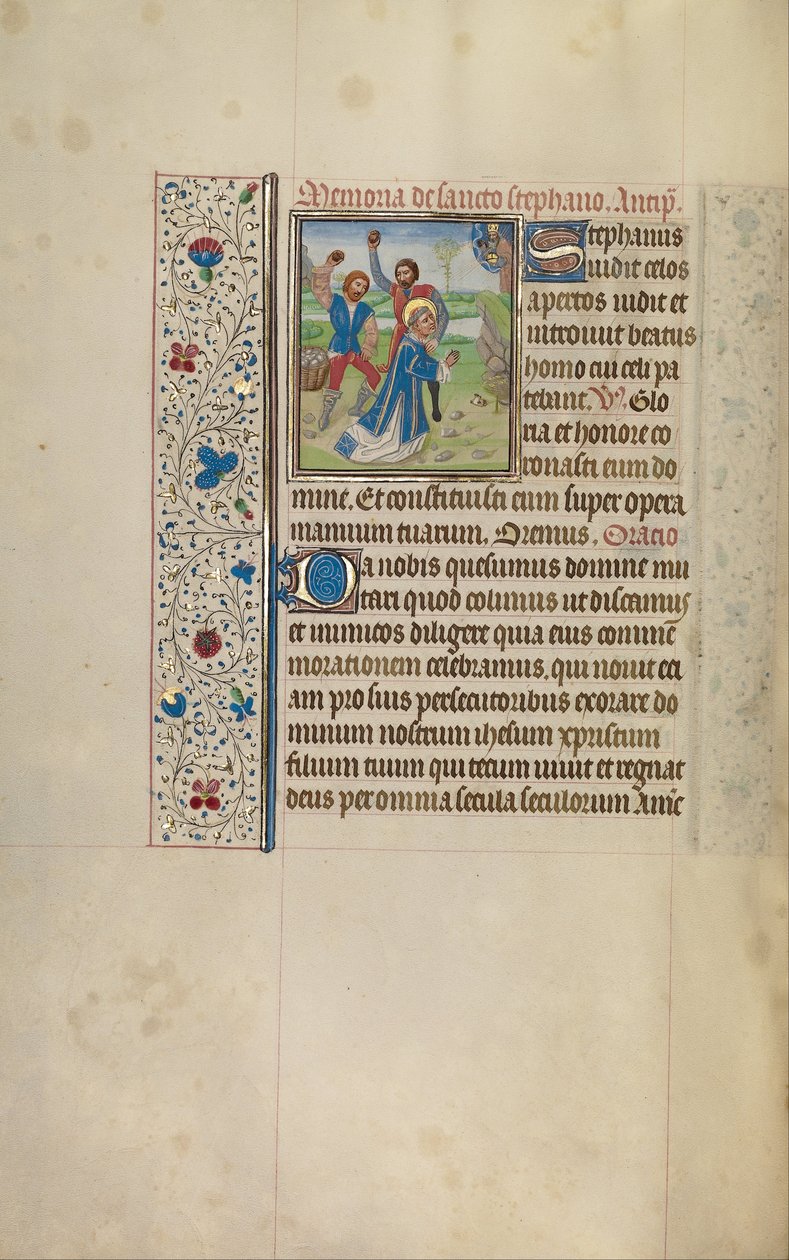 Memoria de sancto stephano. Antip̄.
Stephanus
uidit celos
apertos uidit et
introiuit beatus
homo cui celi pa
tebant. V. Glo
ria et honore co
ronasti eum do
mine. Et constituisti eum super opera
manuum tuarum. Oremus. Oracio
Da nobis quesumus domine imi
tari quod colimus ut discamus
et inimicos diligere quia eius commē
morationem celebramus. qui nouit eci
am pro suis persecutoribus exorare do
minum nostrum ihesum xpristum
filium tuum qui tecum uiuit et regnat
deus per omnia secula seculorum Amē